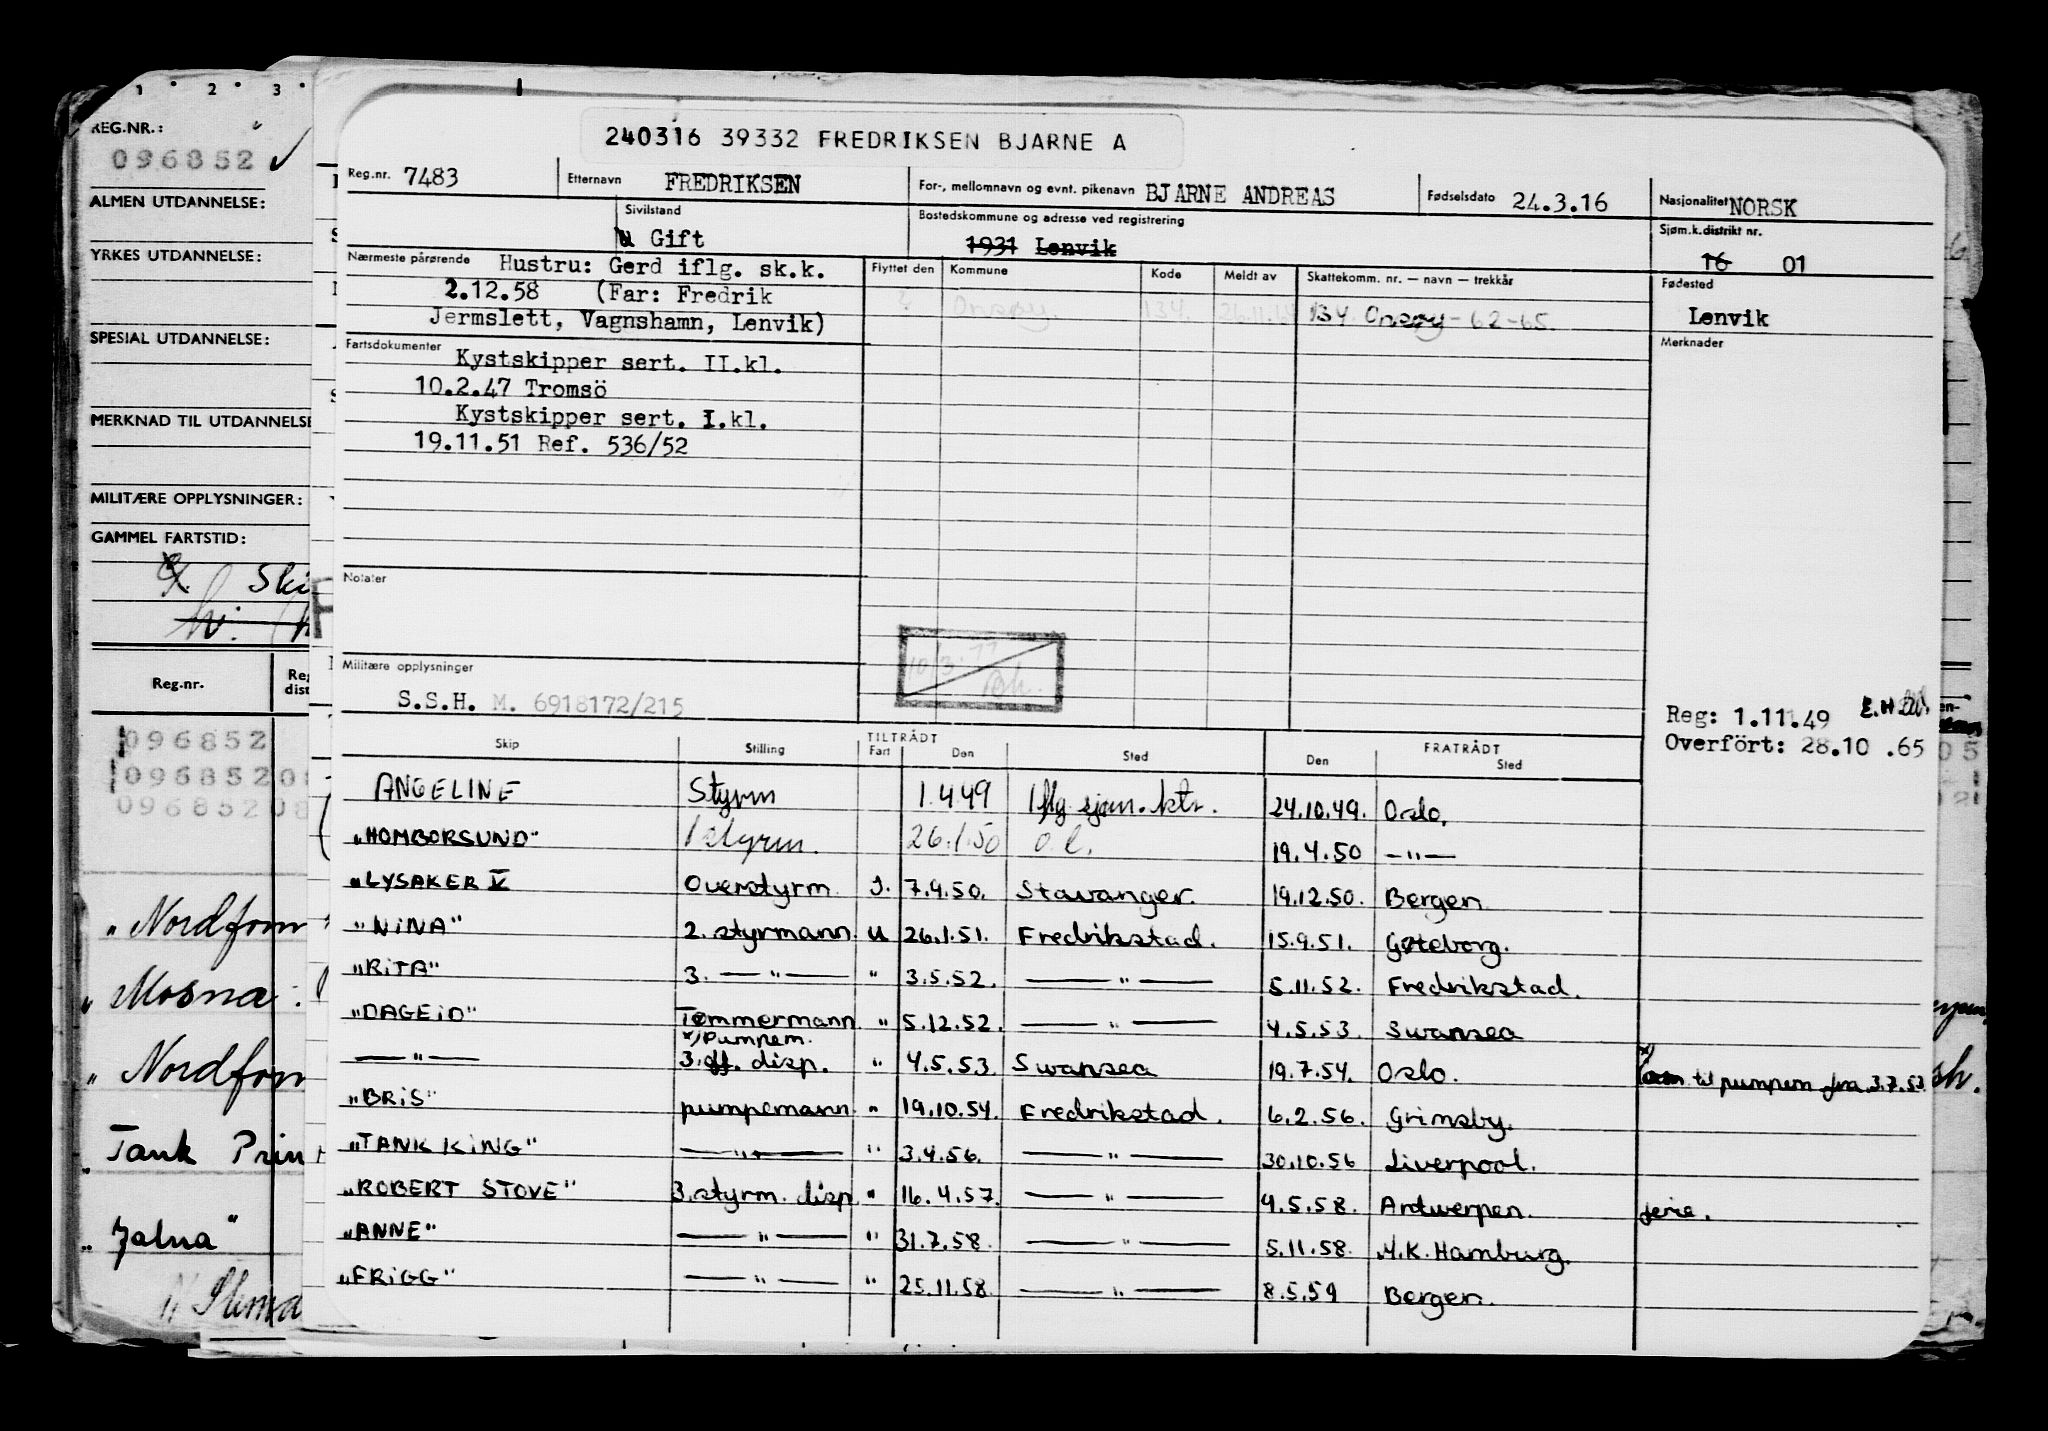 1 2 3
REG.NR.:
096852 ✓
ALMEN UTDANNELSE:
YRKES UTDANNELSE:
SPESIAL UTDANNELSE:
MERKNAD TIL UTDANNELSE
MILITÆRE OPPLYSNINGER:
GAMMEL FARTSTID:
Reg.nr.
096852
09685208
09685208
„Nordfonn
„Mosna
„Nordfonn
„Tank Prin
„Jalna"
240316 39332 FREDRIKSEN BJARNE A
Reg.nr. 7483 Etternavn FREDRIKSEN For-, mellomnavn og evnt. pikenavn BJARNE ANDREAS Fødselsdato 24.3.16 Nasjonalitet NORSK
Sivilstand Bostedskommune og adresse ved registrering Sjøm.k.distrikt nr.
Gift 1931 Lenvik 16 01
Nærmeste pårørende Hustru: Gerd iflg. sk.k. Flyttet den Kommune Kode Meldt av Skattekomm. nr. — navn — trekkår Fødested
2.12.58 (Far: Fredrik Onsøy. 134. 134 Onsøy - 62-65. Lenvik
Jermslett, Vagnshamn, Lenvik) Merknader
Fartsdokumenter Kystskipper sert. II.kl.
10.2.47 Tromsö
Kystskipper sert. I.kl.
19.11.51 Ref. 536/52
Notater
Militære opplysninger
S.S.H. M. 6918172/215
Reg: 1.11.49
Overfört: 28.10.65
Skip Stilling TILTRÅDT Fart Den Sted Den FRATRÅDT Sted
ANGELINE Styrm 1.4.49 Iflg sjøm.ktr. 24.10.49. Oslo.
„HOMBORSUND" 1 styrm. 26.1.50 o.l. 19.4.50 —"—
„LYSAKER V Overstyrm. J. 7.9.50. Stavanger. 19.12.50. Bergen
„NINA" 2. styrmann. U 26.1.51. Fredrikstad. 15.9.51. Gøteborg.
„RITA" 3. —"— " 3.5.52. —"— 5.11.52. Fredrikstad.
„DAGEID" Tømmermann " 5.12.52. —"— 4.5.53. Swansea
x) Pumpem.
—"— 3. off. disp. " 4.5.53. Swansea 19.7.54. Oslo. til pumpem fra 3.7.53
„BRIS" pumpemann " 19.10.54. Fredrikstad. 6.2.56. Grimsby.
„TANK KING" —"— " 3.4.56. —"— 30.10.56 Liverpool.
„ROBERT STOVE" 3. styrm. disp " 16.4.57. —"— 9.5.58. Antwerpen. ferie.
„ANNE" —"— " 31.7.58. —"— 5.11.58. N.K. Hamburg.
„FRIGG" —"— " 25.11.58. —"— 8.5.59 Bergen.